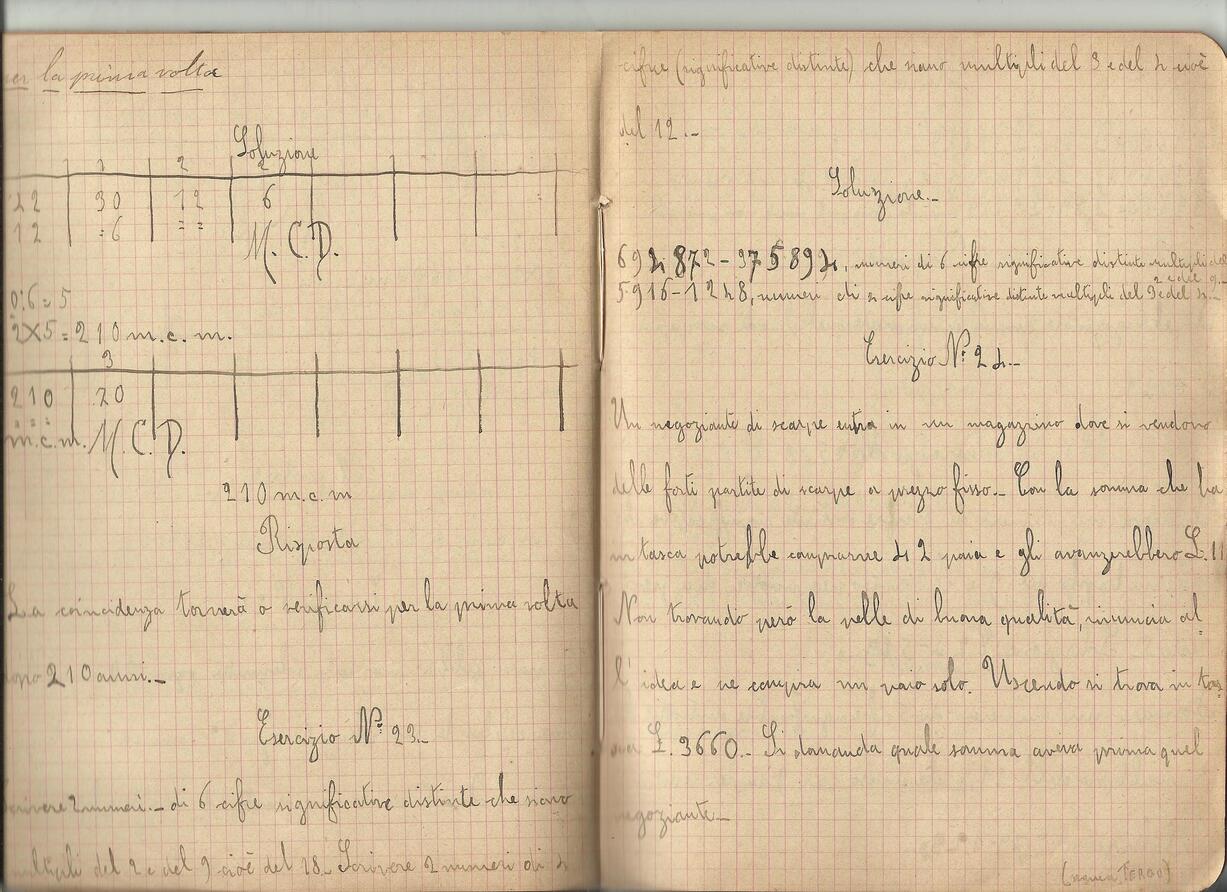 per la prima volta
Soluzione
1 2 2
42 30 12 6
12 :6 ==
M. C. D.
0:6=5
2X5=210 m.c.m.
3
210 70
m.c.m. M. C. D.
210 m.c.m
Risposta
La coincidenza tornerà a verificarsi per la prima volta
dopo 210 anni.-
Esercizio Nº 23.-
Scrivere 2 numeri.- di 6 cifre significative distinte che siano
multipli del 2 e del 9 cioè del 18.- Scrivere 2 numeri di 4
cifre (significative distinte) che siano multipli del 3 e del 4 cioè
del 12.-
Soluzione.-
694872-375894, numeri di 6 cifre significative distinte multipli del
2 e del 9.-
5916-1248, numeri di 4 cifre significative distinte multipli del 3 e del 4.-
Esercizio Nº 24.-
Un negoziante di scarpe entra in un magazzino dove si vendono
delle forti partite di scarpe a prezzo fisso.- Con la somma che ha
in tasca potrebbe comprarne 42 paia e gli avanzerebbero £. 11
Non trovando però la pelle di buona qualità, rinuncia al_
l'idea e ne compra un paio solo. Uscendo si trova in tas_
ca £. 3660.- Si domanda quale somma aveva prima quel
negoziante.-